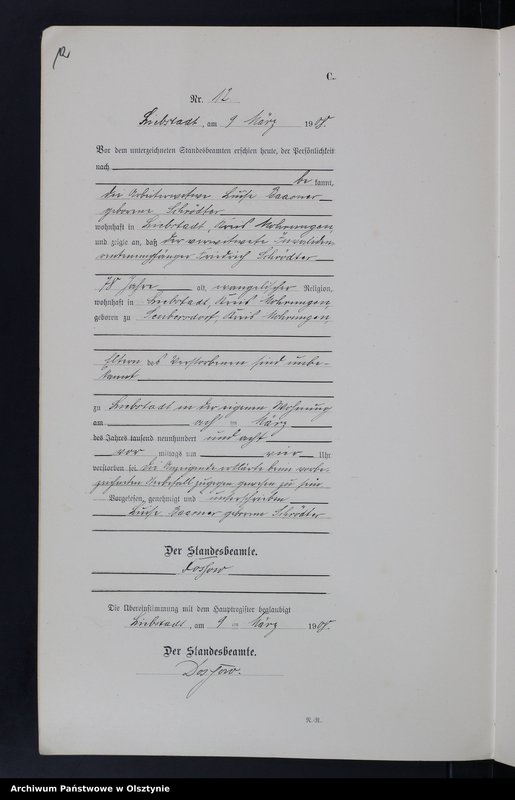 12
C.
Nr. 12
Liebstadt, am 9 März 1908.
Vor dem unterzeichneten Standesbeamten erschien heute, der Persönlichkeit
nach
be kannt,
die Arbeiterwitwe Luise
geborene Schrödter
wohnhaft in Liebstadt, Kreis Mohrungen
und zeigte an, daß der verwitwete Invaliden
rentenempfänger Friedrich Schrödter
78 Jahre alt, evangelischer Religion,
wohnhaft in Liebstadt, Kreis Mohrungen
geboren zu Kreis Mohrungen,
Eltern des Verstorbenen sind unbe-
kannt
zu Liebstadt in der eigenen Wohnung
am acht en März
des Jahres tausend neunhundert und acht
vor mittags um vier Uhr
verstorben sei. Die Anzeigende erklärte beim vorbe-
zeichneten Sterbefall zugegen gewesen zu sein
Vorgelesen, genehmigt und unterschrieben
Luise geborene Schrödter
Der Standesbeamte.
Dossow
Die Übereinstimmung mit dem Hauptregister beglaubigt
Liebstadt, am 9 ten März 1908.
Der Standesbeamte.
Dossow.
N.-R.
Archiwum Państwowe w Olsztynie